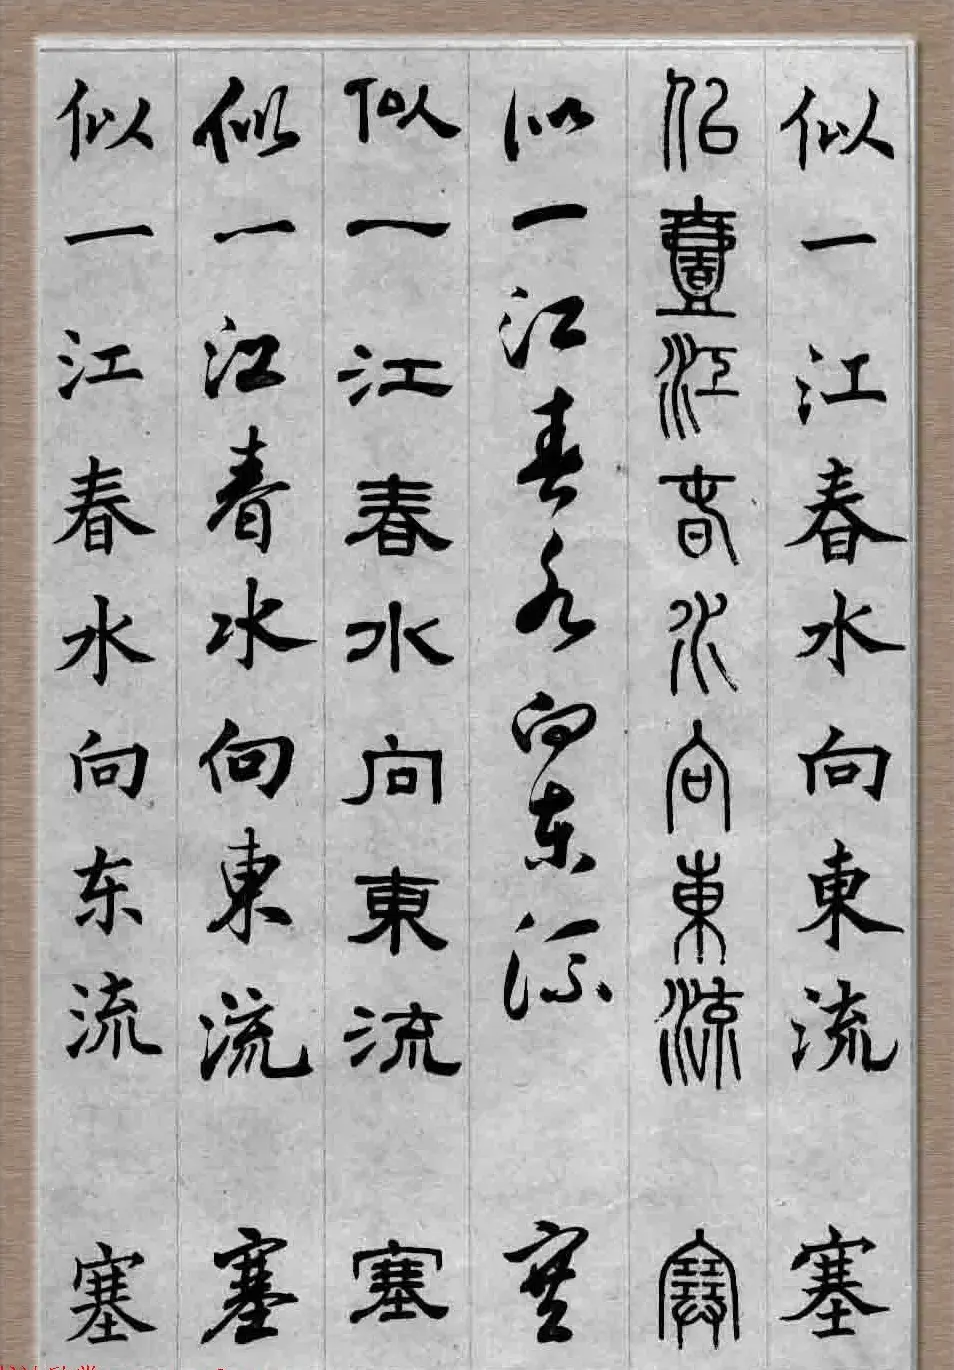 似一江春水向東流 塞
佀壹江春水向東流 塞
似一江春水向东流 塞
似一江春水向東流 塞
似一江春水向東流 塞
似一江春水向东流 塞